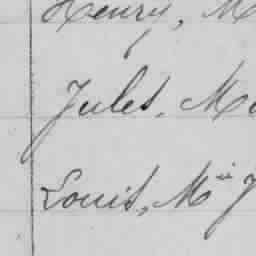 Henry, M
Jules, Ma
Louis, Mii J